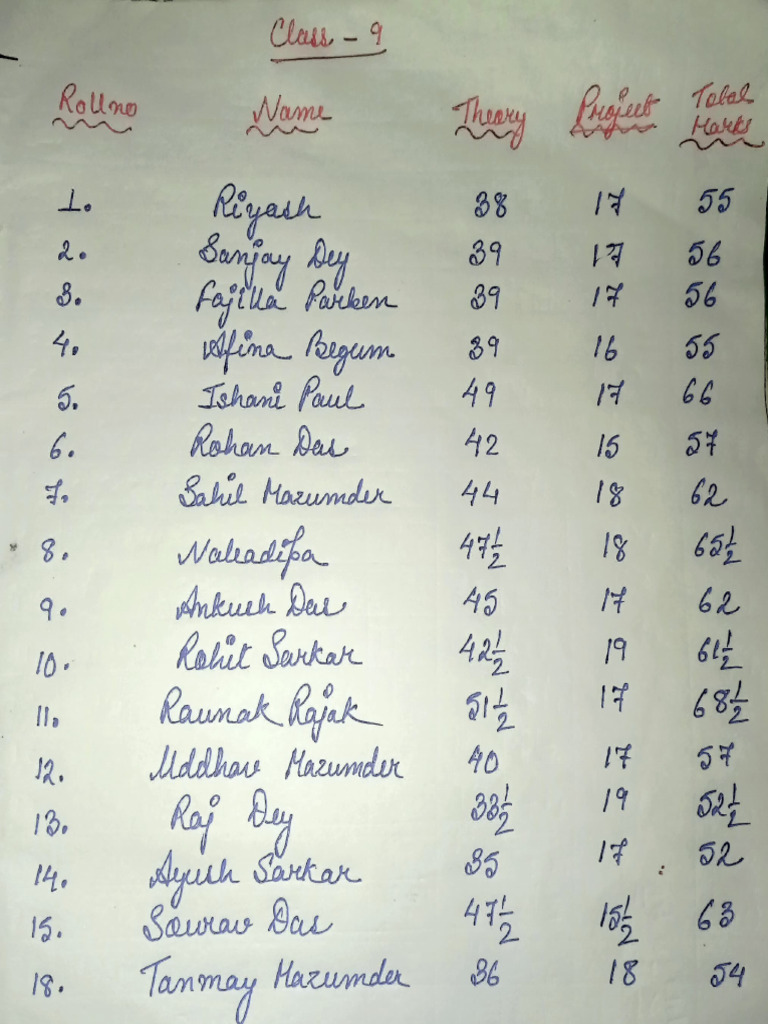 Class - 9
Roll no Name Theory Project Total Marks
1. Riyash 38 17 55
2. Sanjay Dey 39 17 56
3. Fajilla Parben 39 17 56
4. Afina Begum 39 16 55
5. Ishani Paul 49 17 66
6. Rohan Das 42 15 57
7. Sahil Mazumder 44 18 62
8. 47½ 18 65½
9. Ankush Das 45 17 62
10. Rohit Sarkar 42½ 19 61½
11. Raunak Rajak 51½ 17 68½
12. Uddhav Mazumder 40 17 57
13. Raj Dey 33½ 19 52½
14. Ayush Sarkar 35 17 52
15. Sourav Das 47½ 15½ 63
18. Tanmay Mazumder 36 18 54